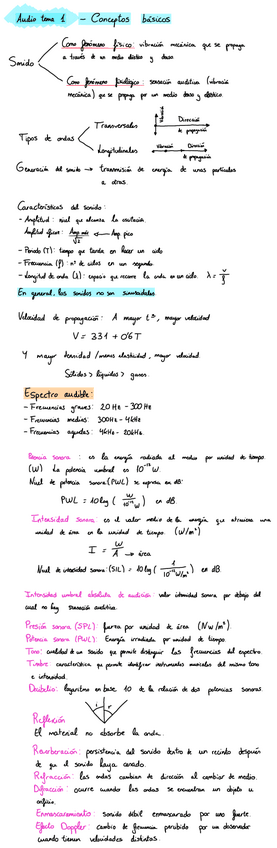 Audio tema 1 - Conceptos básicos
Como fenómeno físico: vibración mecánica que se propaga
a través de un medio elástico y denso
Sonido
Como fenómeno fisiológico: sensación auditiva (vibración
mecánica) que se propaga por un medio denso y elástico.
Transversales
Dirección
de propagación
Tipos de ondas
Longitudinales
Vibración Dirección
de propagación
Generación del sonido → transmisión de energía de unas partículas
a otras.
Características del sonido:
- Amplitud: nivel que alcanza la oscilación.
Amplitud eficaz: Amp. pico
√2
Amp. pico
- Periodo (T): tiempo que tarda en hacer un ciclo
- Frecuencia (f): nº de ciclos en un segundo
- Longitud de onda (λ): espacio que recorre la onda en un ciclo. λ = v/f
En general, los sonidos no son sinusoidales
Velocidad de propagación: A mayor tª, mayor velocidad
V = 331 + 0'6 T
Y mayor densidad / menos elasticidad, mayor velocidad.
Sólidos > líquidos > gases.
Espectro audible:
- Frecuencias graves: 20 Hz - 300 Hz
- Frecuencias medias: 300Hz - 4kHz
- Frecuencias agudas: 4kHz - 20kHz.
Potencia sonora: es la energía radiada al medio por unidad de tiempo
(W) La potencia umbral es 10⁻¹² W.
Nivel de potencia sonora (PWL) se expresa en dB:
PWL = 10 log ( W / 10⁻¹² W ) en dB.
Intensidad sonora: es el valor medio de la energía que atraviesa una
unidad de área en la unidad de tiempo. (W/m²)
I = W/A → área
Nivel de intensidad sonora (SIL) = 10 log ( I / 10⁻¹² W/m² ) en dB
Intensidad umbral absoluta de audición: valor intensidad sonora por debajo del
cual no hay sensación auditiva.
Presión sonora (SPL): fuerza por unidad de área (Nw/m²).
Potencia sonora (PWL): Energía irradiada por unidad de tiempo.
Tono: cualidad de un sonido que permite distinguir las frecuencias del espectro.
Timbre: característica que permite identificar instrumentos musicales del mismo tono
e intensidad.
Decibelio: logaritmo en base 10 de la relación de dos potencias sonoras.
Reflexión
El material no absorbe la onda.
Reverberación: persistencia del sonido dentro de un recinto después
de que el sonido haya cesado.
Refracción: las ondas cambian de dirección al cambiar de medio.
Difracción: ocurre cuando las ondas se encuentran un objeto u
orificio.
Enmascaramiento: sonido débil enmascarado por uno fuerte.
Efecto Doppler: cambio de frecuencia percibido por un observador
cuando tienen velocidades distintas.